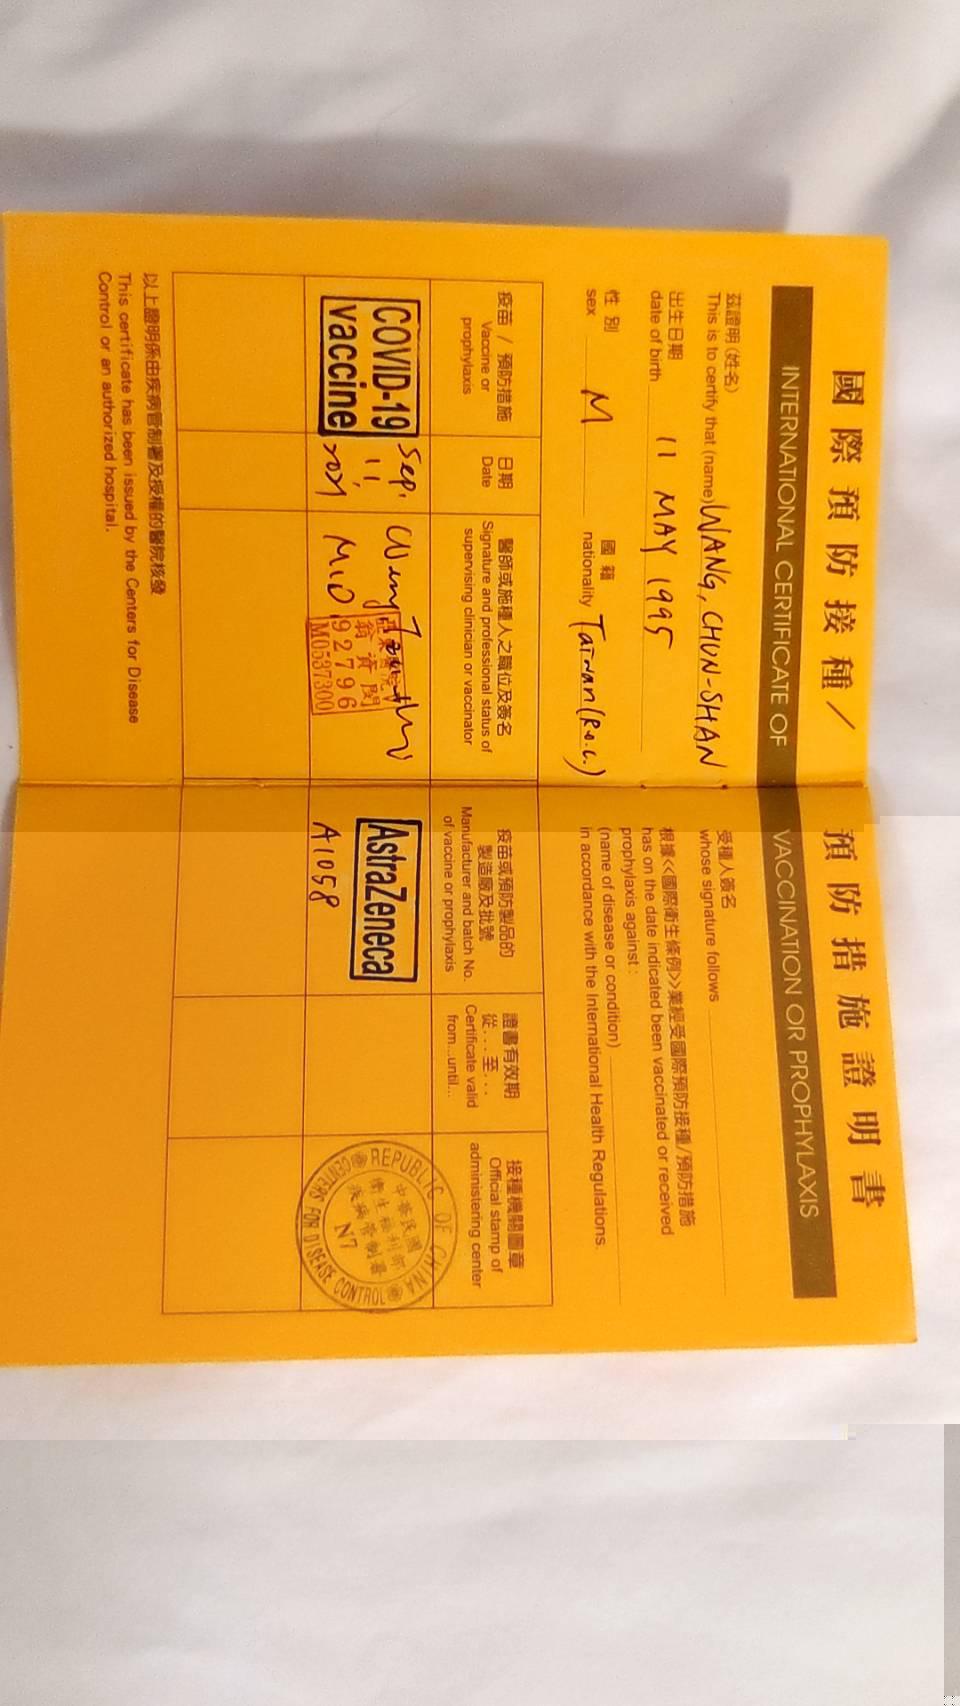 國際預防接種／預防措施證明書
INTERNATIONAL CERTIFICATE OF VACCINATION OR PROPHYLAXIS
茲證明 (姓名)
This is to certify that (name) WANG, CHUN-SHAN
出生日期
date of birth 11 MAY 1995
性別 國籍
sex M nationality Taiwan (R.O.C.)
受種人簽名
whose signature follows
根據<<國際衛生條例>>業經受國際預防接種/預防措施
has on the date indicated been vaccinated or received
prophylaxis against :
(name of disease or condition)
in accordance with the International Health Regulations.
疫苗 / 預防措施
Vaccine or
prophylaxis
日期
Date
醫師或施種人之職位及簽名
Signature and professional status of
supervising clinician or vaccinator
疫苗或預防製品的
製造廠及批號
Manufacturer and batch No.
of vaccine or prophylaxis
證書有效期
從...至...
Certificate valid
from...until...
接種機關圖章
Official stamp of
administering center
COVID-19
vaccine
Sep.
11,
2021
M.D
92796
M0537300
AstraZeneca
A1058
REPUBLIC OF CHINA
中華民國
衛生福利部
疾病管制署
N7
CENTERS FOR DISEASE CONTROL
以上證明係由疾病管制署及授權的醫院核發
This certificate has been issued by the Centers for Disease
Control or an authorized hospital.